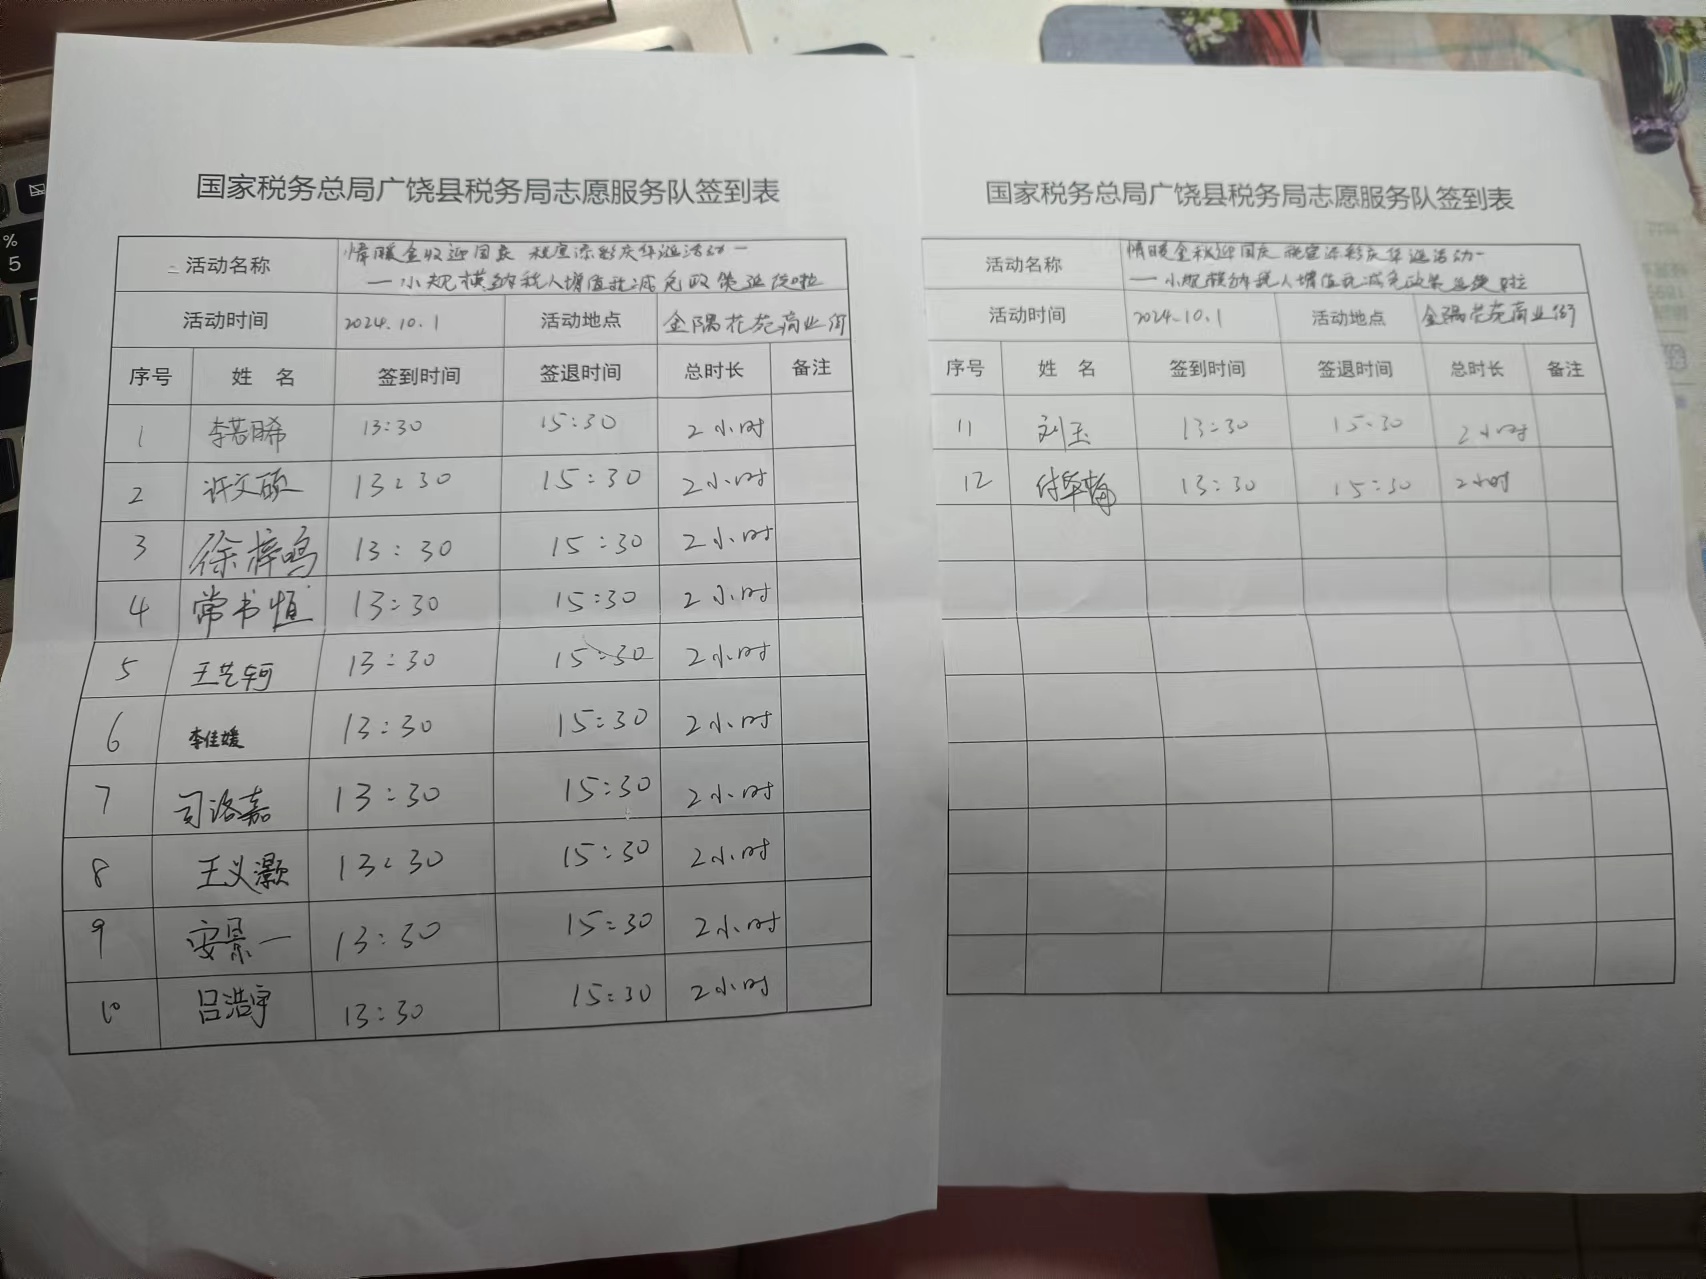 国家税务总局广饶县税务局志愿服务队签到表
活动名称 情暖金秋迎国庆 税宣添彩庆华诞活动—
—小规模纳税人增值税减免政策延续啦
活动时间 2024.10.1 活动地点 金隅花苑商业街
序号 姓 名 签到时间 签退时间 总时长 备注
1 李若晞 13:30 15:30 2小时
2 许文硕 13:30 15:30 2小时
3 徐梓鸣 13:30 15:30 2小时
4 常书恒 13:30 15:30 2小时
5 王艺轲 13:30 15:30 2小时
6 李佳媛 13:30 15:30 2小时
7 司洛嘉 13:30 15:30 2小时
8 王义灏 13:30 15:30 2小时
9 安景一 13:30 15:30 2小时
10 吕浩宇 13:30 15:30 2小时
国家税务总局广饶县税务局志愿服务队签到表
活动名称 情暖金秋迎国庆 税宣添彩庆华诞活动—
—小规模纳税人增值税减免政策延续啦
活动时间 2024.10.1 活动地点 金隅花苑商业街
序号 姓 名 签到时间 签退时间 总时长 备注
11 刘玉 13:30 15:30 2小时
12 13:30 15:30 2小时
%
5